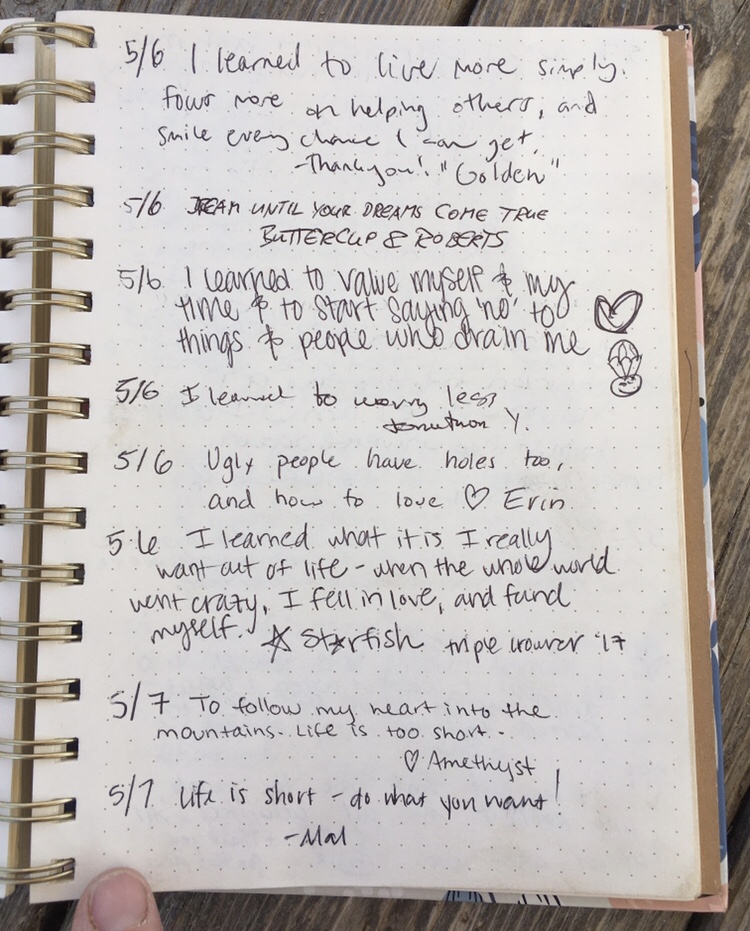 5/6 I learned to live more simply.
focus more on helping others, and
smile every chance I can get.
-Thank you! "Golden"
5/6 DREAM UNTIL YOUR DREAMS COME TRUE
BUTTERCUP & ROBERTS
5/6 I learned to value myself & my
time & to start saying 'no' to
things & people who drain me
5/6 I learned to worry less
Y.
5/6 Ugly people have holes too,
and how to love ♡ Erin
5/6 I learned what it is I really
want out of life - when the whole world
went crazy, I fell in love, and found
myself. ☆ St☆rfish triple crowner '17
5/7 To follow my heart into the
mountains. Life is too short.
♡ Amethyst
5/7 Life is short - do what you want!
-Mal